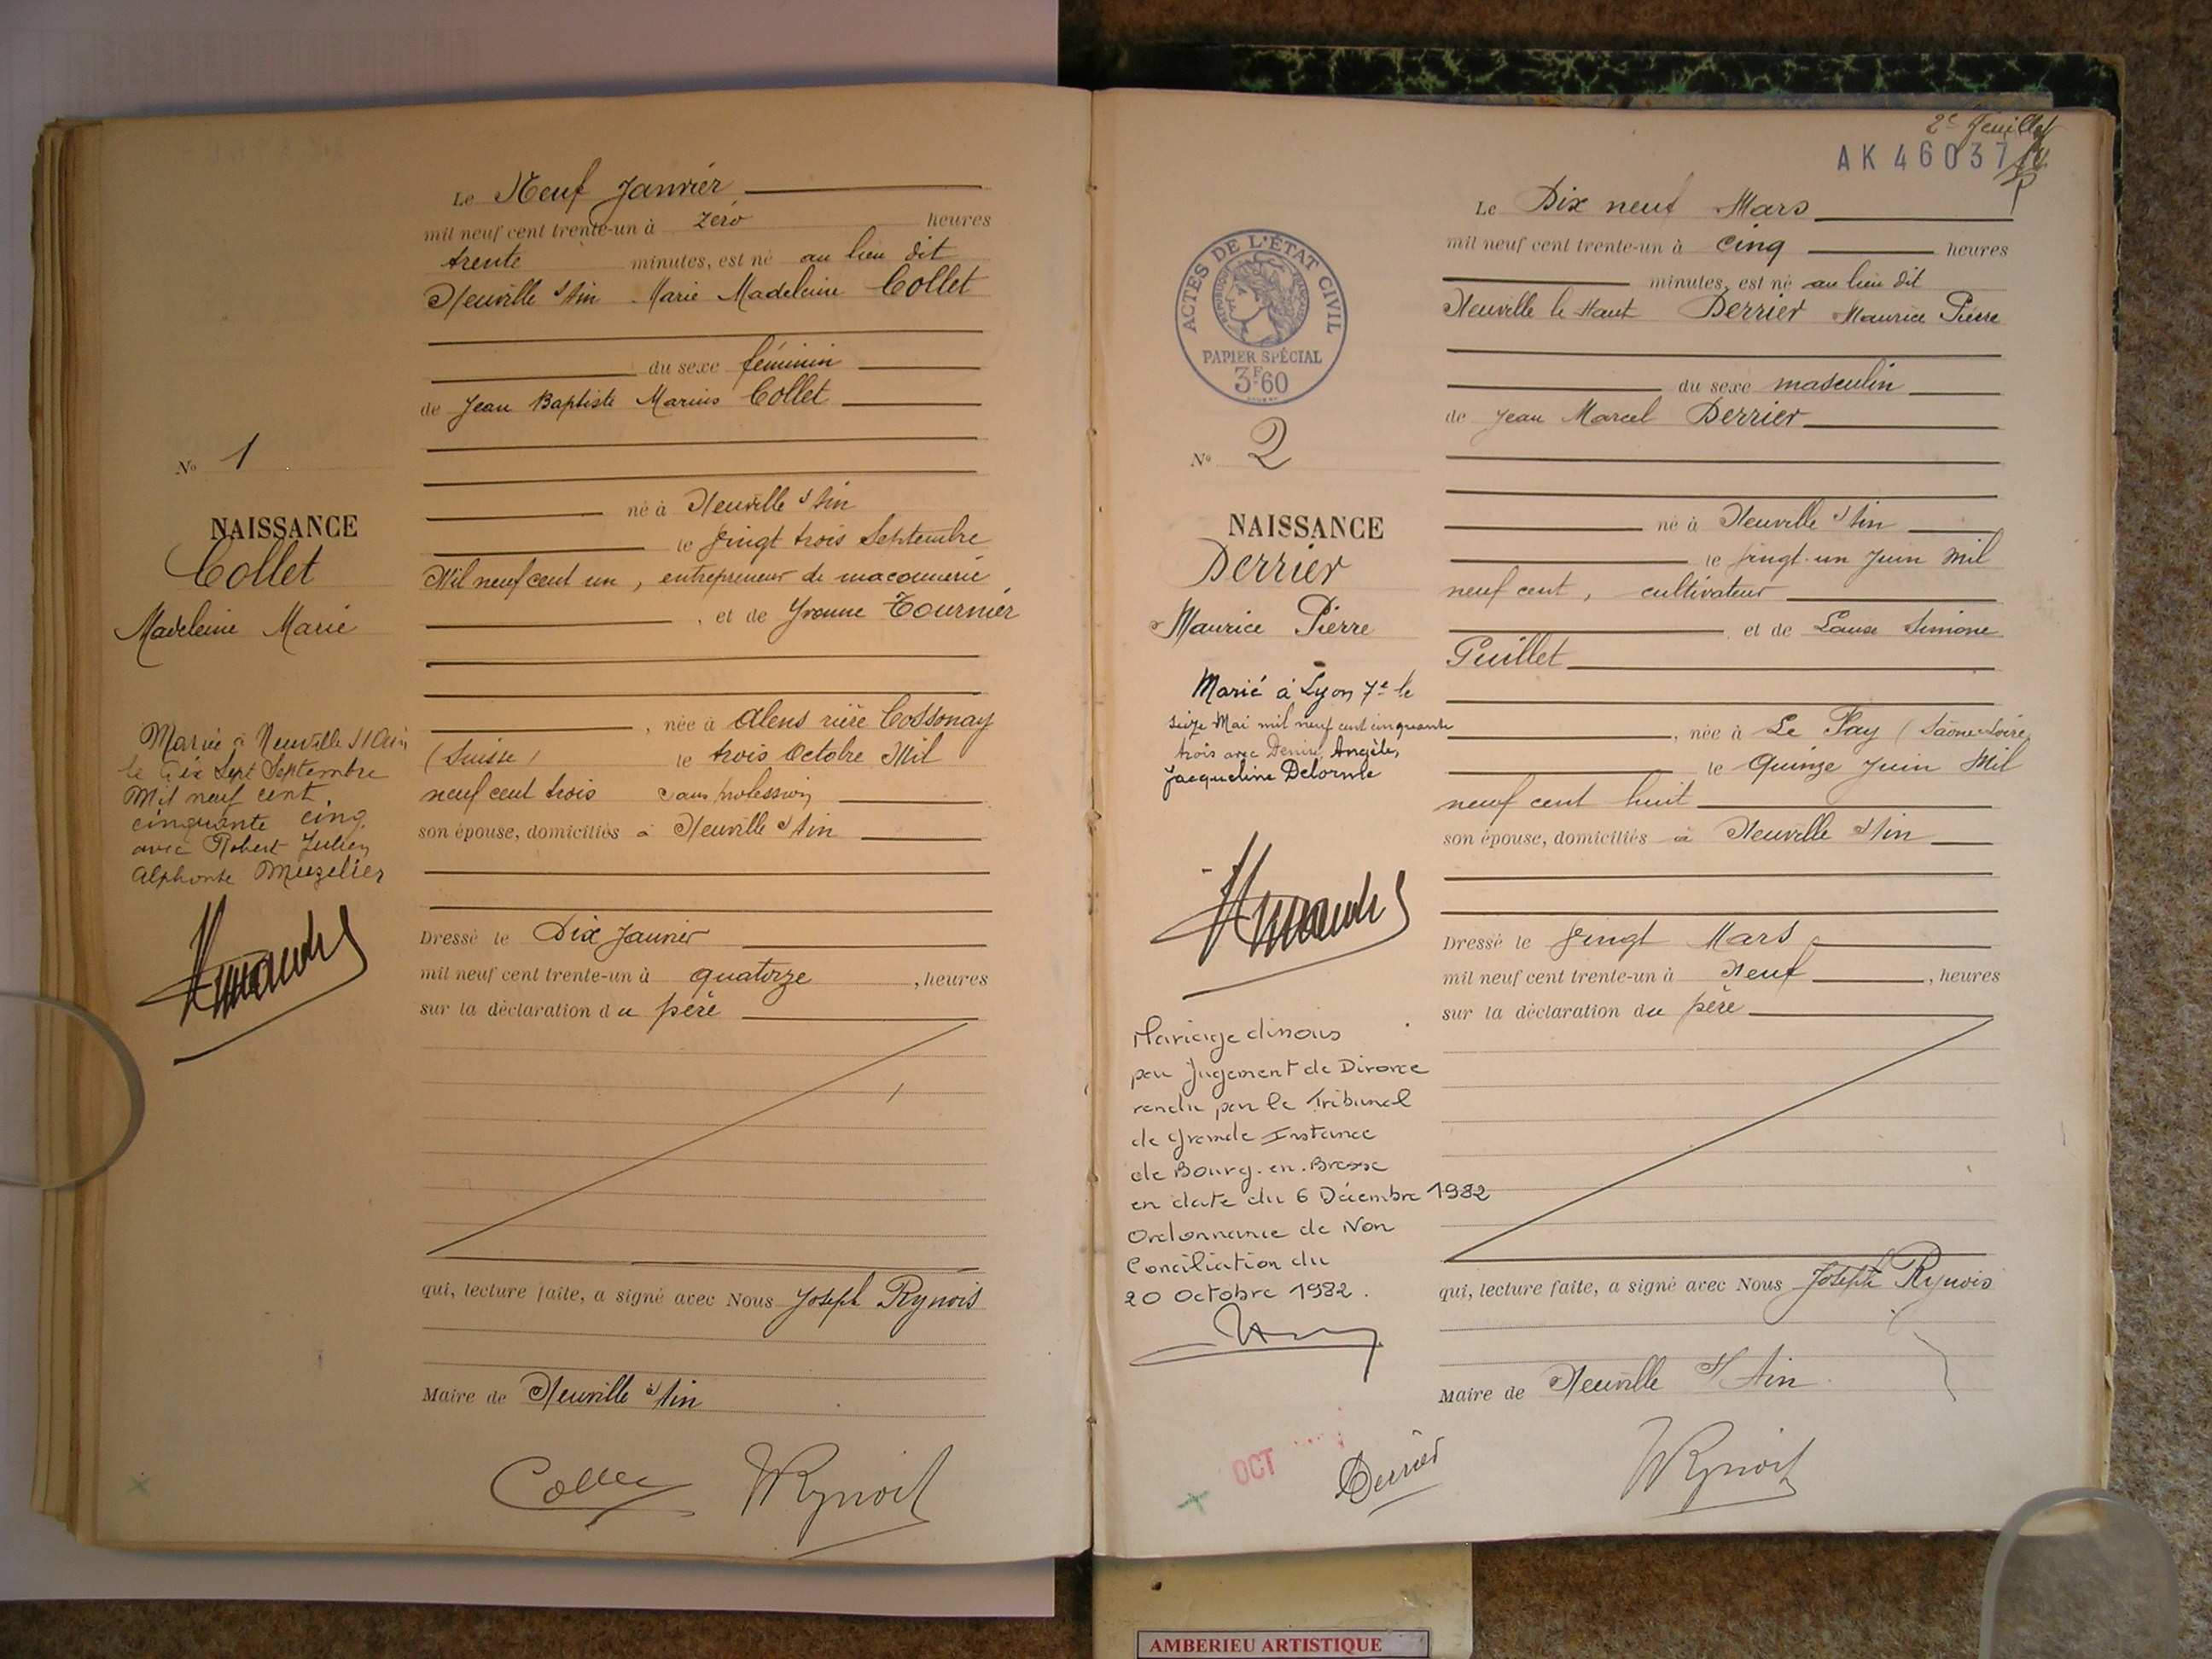 Le Neuf Janvier
mil neuf cent trente-un à zéro heures
trente minutes, est né au lieu dit
Neuville s/Ain Marie Madeleine Collet
du sexe féminin
de Jean Baptiste Marius Collet
né à Neuville s/Ain
le vingt trois Septembre
Mil neuf cent un, entrepreneur de maçonnerie
, et de Yvonne Tournier
, née à Alens rière Cossonay
(Suisse) le trois Octobre Mil
neuf cent trois sans profession
son épouse, domiciliés à Neuville s/Ain
Dressé le Dix Janvier
mil neuf cent trente-un à quatorze, heures
sur la déclaration du père
qui, lecture faite, a signé avec Nous Joseph Rynois
Maire de Neuville s/Ain
Collet Rynois
No 1
NAISSANCE
Collet
Madeleine Marie
Mariée à Neuville s/Ain
le Dix Sept Septembre
Mil neuf cent
cinquante cinq
avec Robert Julien
Alphonse Muzelier
2e Feuillet
AK 46037
Le Dix neuf Mars
mil neuf cent trente-un à cinq heures
minutes, est né au lieu dit
Neuville le Haut Derrier Maurice Pierre
du sexe masculin
de Jean Marcel Derrier
né à Neuville s/Ain
le vingt-un Juin Mil
neuf cent, cultivateur
et de Simone
Guillet
, née à Le Fay (Saône-Loire)
le Quinze Juin Mil
neuf cent huit
son épouse, domiciliés à Neuville s/Ain
Dressé le vingt Mars
mil neuf cent trente-un à Neuf, heures
sur la déclaration du père
qui, lecture faite, a signé avec Nous Joseph Rynois
Maire de Neuville s/Ain
Derrier Rynois
ACTES DE L'ÉTAT CIVIL
RÉPUBLIQUE FRANÇAISE
PAPIER SPÉCIAL
3F60
No 2
NAISSANCE
Derrier
Maurice Pierre
Marié à Lyon 7e le
seize Mai mil neuf cent cinquante
trois avec Denise, Angèle,
Jacqueline Delorme
Mariage dissous
par Jugement de Divorce
rendu par le Tribunal
de Grande Instance
de Bourg-en-Bresse
en date du 6 Décembre 1982
Ordonnance de Non
Conciliation du
20 Octobre 1982.
OCT
AMBERIEU ARTISTIQUE